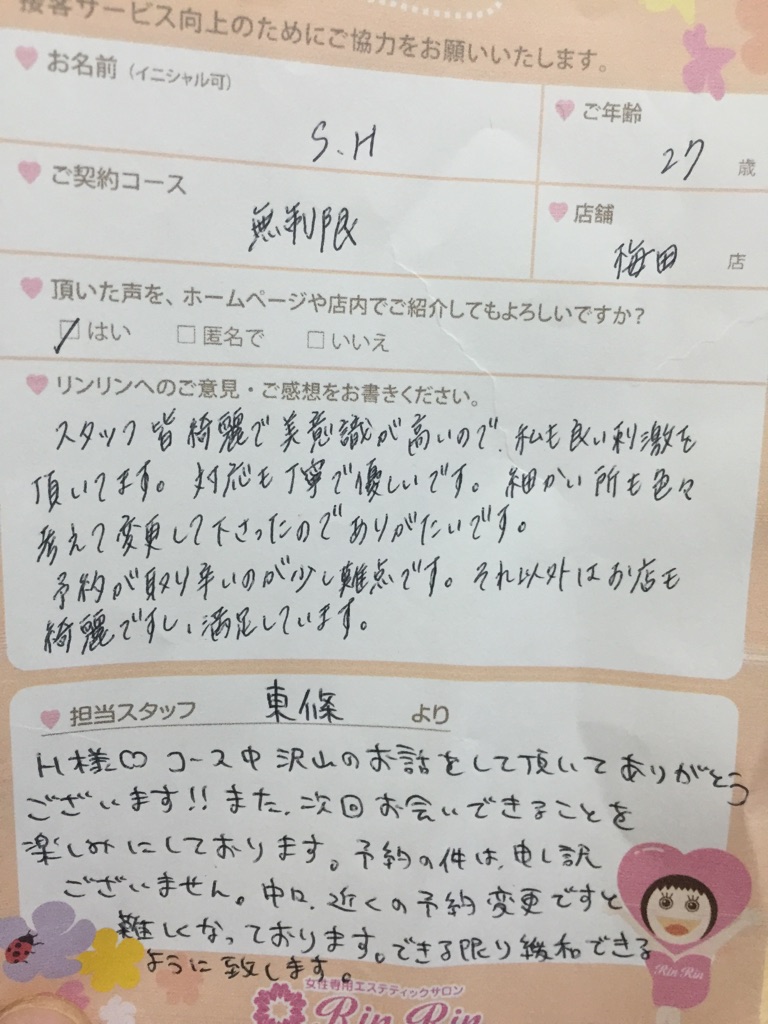 接客サービス向上のためにご協力をお願いいたします。
お名前（イニシャル可）
S.H
ご年齢
27 歳
ご契約コース
無制限
店舗
梅田 店
頂いた声を、ホームページや店内でご紹介してもよろしいですか？
はい □匿名で □いいえ
リンリンへのご意見・ご感想をお書きください。
スタッフ皆綺麗で美意識が高いので、私も良い刺激を
頂いてます。対応も丁寧で優しいです。細かい所も色々
考えて変更して下さったのでありがたいです。
予約が取り辛いのが少し難点です。それ以外はお店も
綺麗ですし、満足しています。
担当スタッフ 東條 より
H様♡コース中沢山のお話をして頂いてありがとう
ございます!!また、次回お会いできることを
楽しみにしております。予約の件は、申し訳
ございません。中々、近くの予約変更ですと
難しくなっております。できる限り緩和できる
ように致します。
Rin Rin
女性専用エステティックサロン
Rin Rin